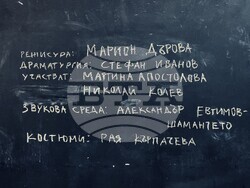 РЕЖИСУРА: МАРИОН ДЪРОВА
ДРАМАТУРГИЯ: СТЕФАН ИВАНОВ
УЧАСТВАТ: МАРТИНА АПОСТОЛОВА
НИКОЛАЙ КОЛЕВ
ЗВУКОВА СРЕДА: АЛЕКСАНДЪР ЕВТИМОВ-
ШАМАНЧЕТО
КОСТЮМИ: РАЯ КЪРПАЧЕВА